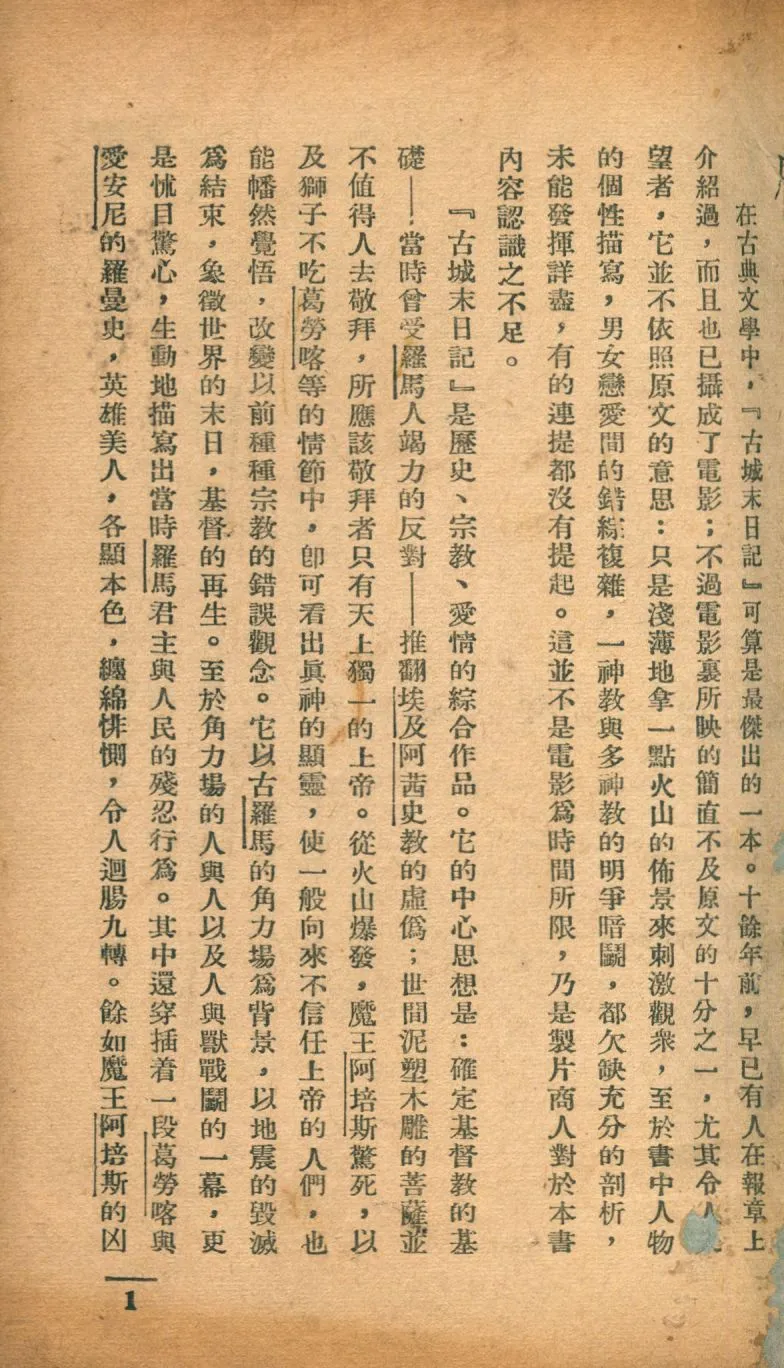 在古典文學中，『古城末日記』可算是最傑出的一本。十餘年前，早已有人在報章上
介紹過，而且也已攝成了電影；不過電影裏所映的簡直不及原文的十分之一，尤其令人
望者，它並不依照原文的意思：只是淺薄地拿一點火山的佈景來刺激觀衆，至於書中人物
的個性描寫，男女戀愛間的錯綜複雜，一神教與多神教的明爭暗鬭，都欠缺充分的剖析，
未能發揮詳盡，有的連提都沒有提起。這並不是電影爲時間所限，乃是製片商人對於本書
內容認識之不足。
『古城末日記』是歷史、宗教、愛情的綜合作品。它的中心思想是：確定基督教的基
礎——當時曾受羅馬人竭力的反對——推翻埃及阿茜史教的虛僞；世間泥塑木雕的菩薩並
不值得人去敬拜，所應該敬拜者只有天上獨一的上帝。從火山爆發，魔王阿培斯驚死，以
及獅子不吃葛勞喀等的情節中，卽可看出眞神的顯靈，使一般向來不信任上帝的人們，也
能幡然覺悟，改變以前種種宗教的錯誤觀念。它以古羅馬的角力場爲背景，以地震的毀滅
爲結束，象徵世界的末日，基督的再生。至於角力場的人與人以及人與獸戰鬭的一幕，更
是怵目驚心，生動地描寫出當時羅馬君主與人民的殘忍行爲。其中還穿插着一段葛勞喀與
愛安尼的羅曼史，英雄美人，各顯本色，纏綿悱惻，令人迴腸九轉。餘如魔王阿培斯的凶
1